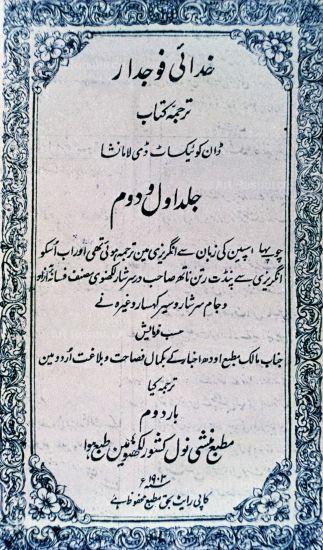 خدائی فوجدار
ترجمۂ کتاب
ڈان کوئیکساٹ ڈی لامانشا
جلد اول و دوم
جو پہلے اسپین کی زبان سے انگریزی مین ترجمہ ہوئی تھی اور اب اسکو
انگریزی سے پنڈت رتن ناتھ صاحب در سرشار لکھنوی مصنف فسانۂ آزاد
و جام سرشار و سیر کہسار وغیرہ نے
حسب فرمایش
جناب مالک مطبع اودھ اخبار کے بکمال فصاحت و بلاغت اردو مین
ترجمہ کیا
بار دوم
مطبع منشی نول کشور لکھنؤ مین طبع ہوا
۱۹۰۳ء
کاپی رائٹ بحق مطبع محفوظ ہے